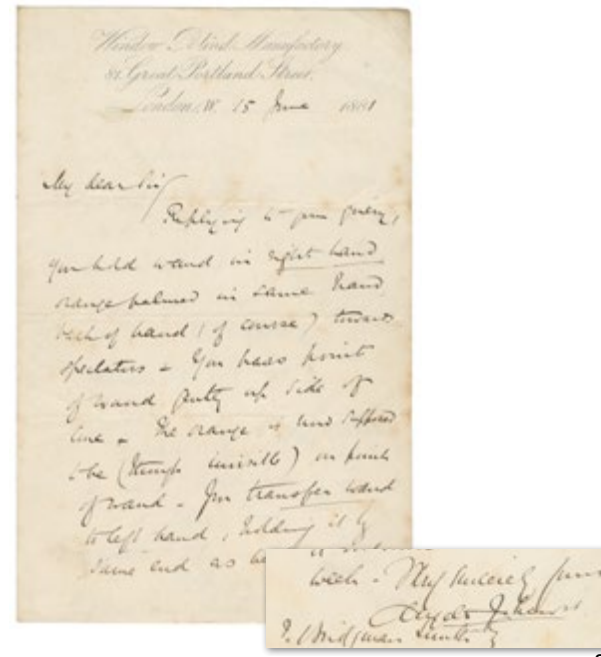 Window Blind Manufactory
81 Great Portland Street,
London, W. 15 June 1881
My dear Sir
Replying to your query,
you hold wand in right hand
orange palmed in same hand
back of hand (of course) towards
spectators - You pass point
of wand gently up side of
cone - The orange is now supposed
to be (though invisible) on point
of wand - You transfer wand
to left hand, holding it by
same end as
with - Very sincerely yours
J. Bridgman Smith